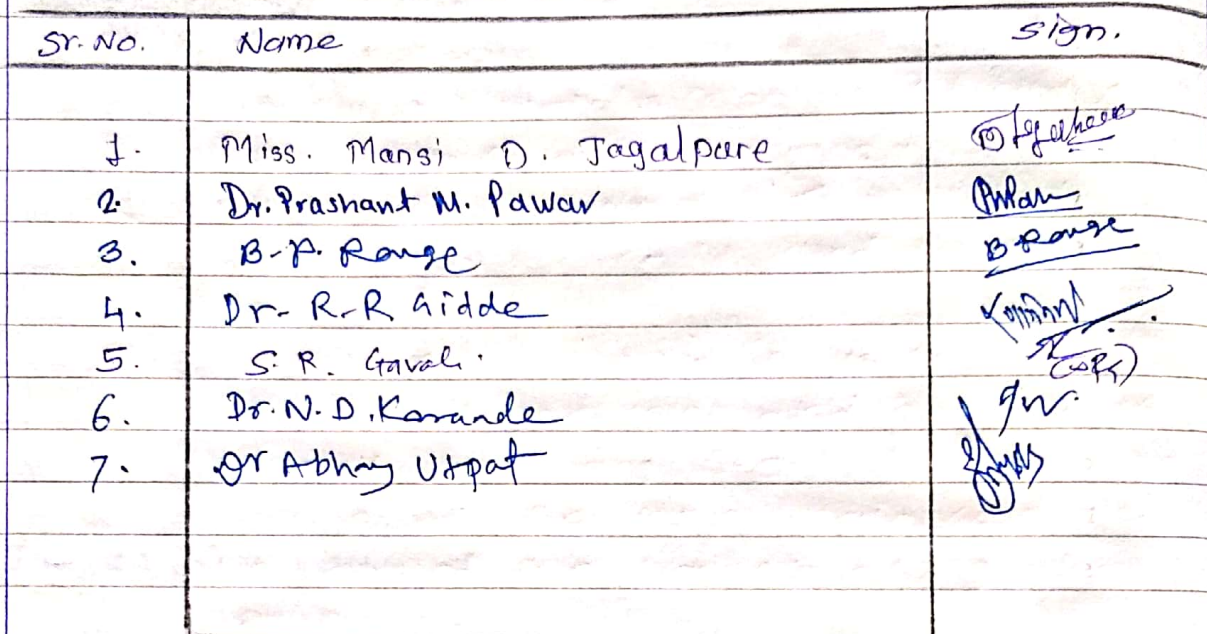 Sr. No. Name Sign.
1. Miss. Mansi D. Jagalpure
2. Dr. Prashant M. Pawar
3. B. P. Ronge B Ronge
4. Dr. R. R Gidde
5. S. R. Gavali.
6. Dr. N. D. Karande
7. Dr Abhay Utpat